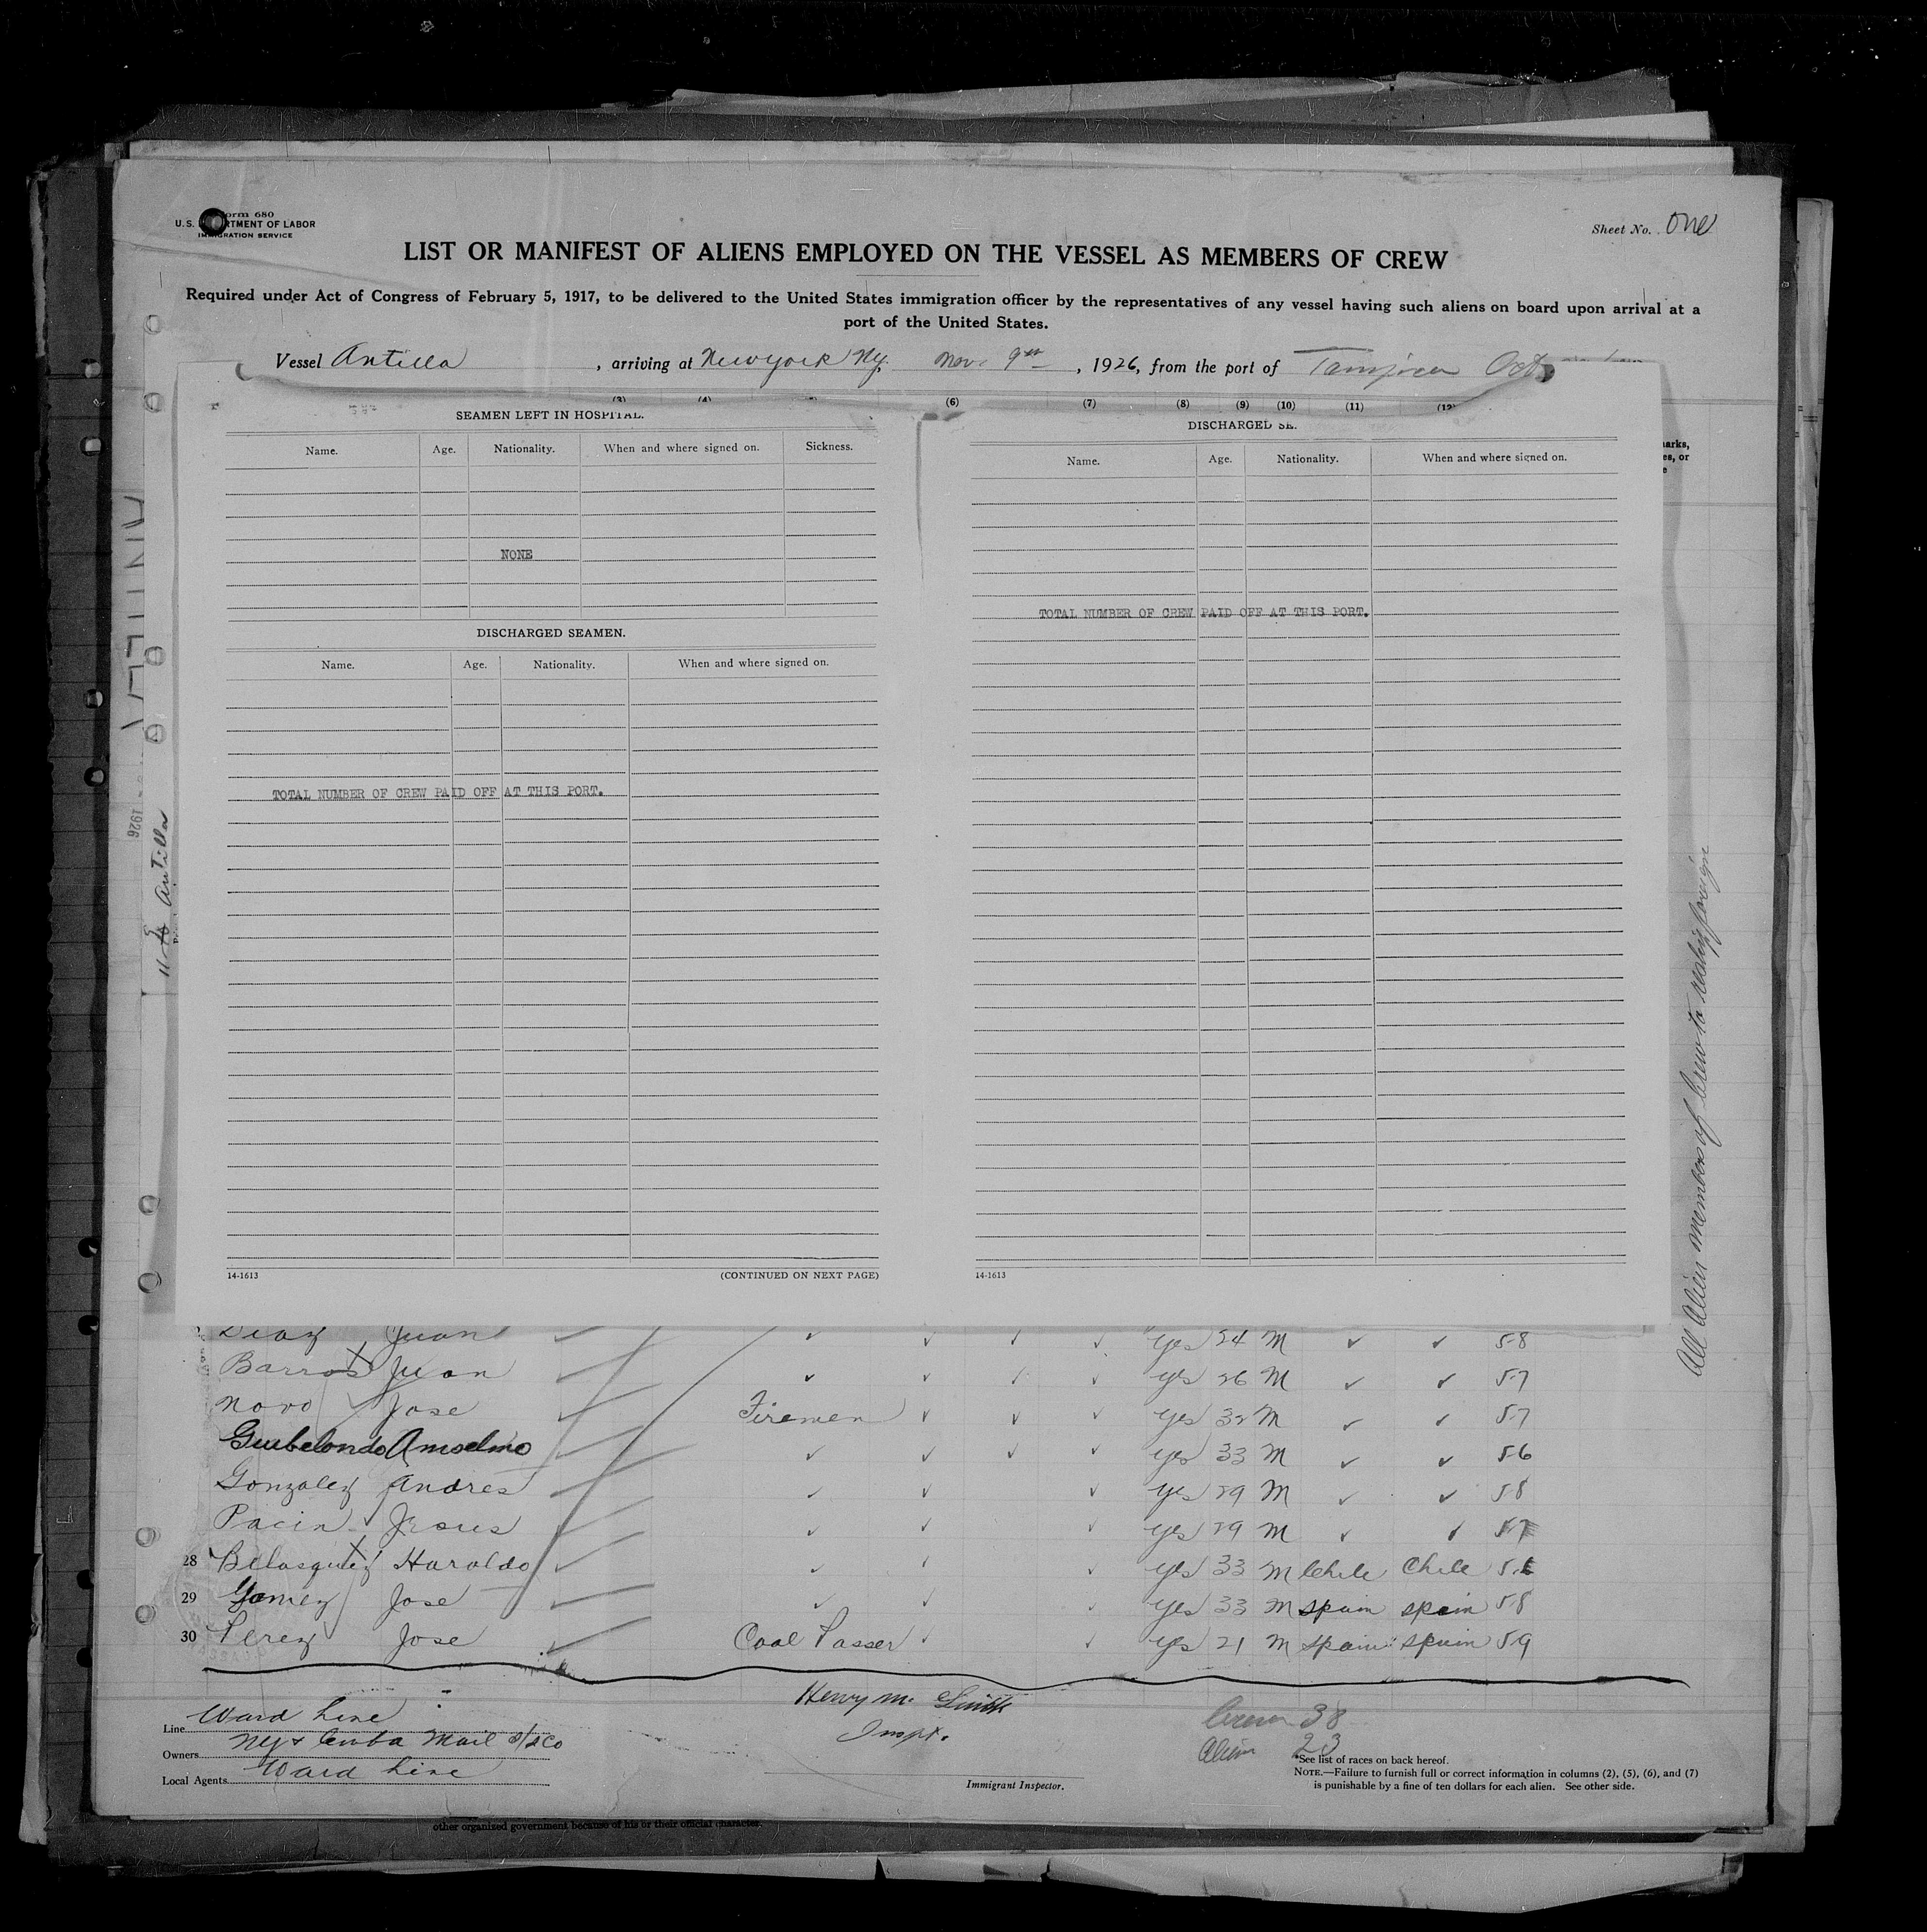 Form 680
U. S. DEPARTMENT OF LABOR
IMMIGRATION SERVICE
Sheet No. One
LIST OR MANIFEST OF ALIENS EMPLOYED ON THE VESSEL AS MEMBERS OF CREW
Required under Act of Congress of February 5, 1917, to be delivered to the United States immigration officer by the representatives of any vessel having such aliens on board upon arrival at a
port of the United States.
Vessel Antilla , arriving at New York Ny. Nov. 9th , 1926, from the port of Tampico Oct
(3) (4) (6) (7) (8) (9) (10) (11) (12)
SEAMEN LEFT IN HOSPITAL.
Name. Age. Nationality. When and where signed on. Sickness.
NONE
DISCHARGED SEAMEN.
Name. Age. Nationality. When and where signed on.
TOTAL NUMBER OF CREW PAID OFF AT THIS PORT.
14-1613 (CONTINUED ON NEXT PAGE)
DISCHARGED SE
Name. Age. Nationality. When and where signed on.
TOTAL NUMBER OF CREW PAID OFF AT THIS PORT.
14-1613
arks,
es, or
e
ANTILLA
1926
Antilla
All Alien members of Crew to reship foreign
Diaz Juan ✓ ✓ ✓ ✓ yes 24 M ✓ ✓ 5-8
Barros Juan ✓ ✓ ✓ ✓ yes 26 M ✓ ✓ 5-7
Novo Jose Firemen ✓ ✓ ✓ yes 32 M ✓ ✓ 5-7
Guibelondo Anselmo ✓ ✓ ✓ ✓ yes 33 M ✓ ✓ 5-6
Gonzalez Andres ✓ ✓ ✓ yes 29 M ✓ ✓ 5-8
Pacin Jesus ✓ ✓ ✓ yes 29 M ✓ ✓ 5-7
28 Belasquez Haroldo ✓ ✓ ✓ yes 33 M Chile Chile 5-6
29 Gomez Jose ✓ ✓ ✓ yes 33 M Spain Spain 5-8
30 Perez Jose Coal Passer ✓ ✓ yes 21 M Spain Spain 5-9
Line Ward Line
Owners NY & Cuba Mail S/S Co
Local Agents Ward Line
Henry M. Smith
Inspt.
Immigrant Inspector.
Crew 38
Alien 23
*See list of races on back hereof.
NOTE.—Failure to furnish full or correct information in columns (2), (5), (6), and (7)
is punishable by a fine of ten dollars for each alien. See other side.
other organized government because of his or their official character.